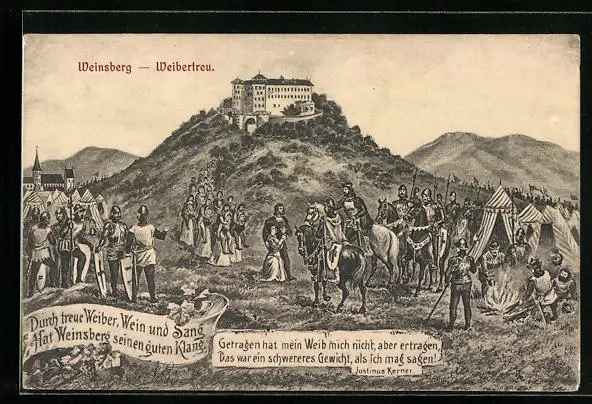 Weinsberg — Weibertreu.
Durch treue Weiber, Wein und Sang
Hat Weinsberg seinen guten Klang.
Getragen hat mein Weib mich nicht, aber ertragen,
Das war ein schwereres Gewicht, als ich mag sagen!
Justinus Kerner.